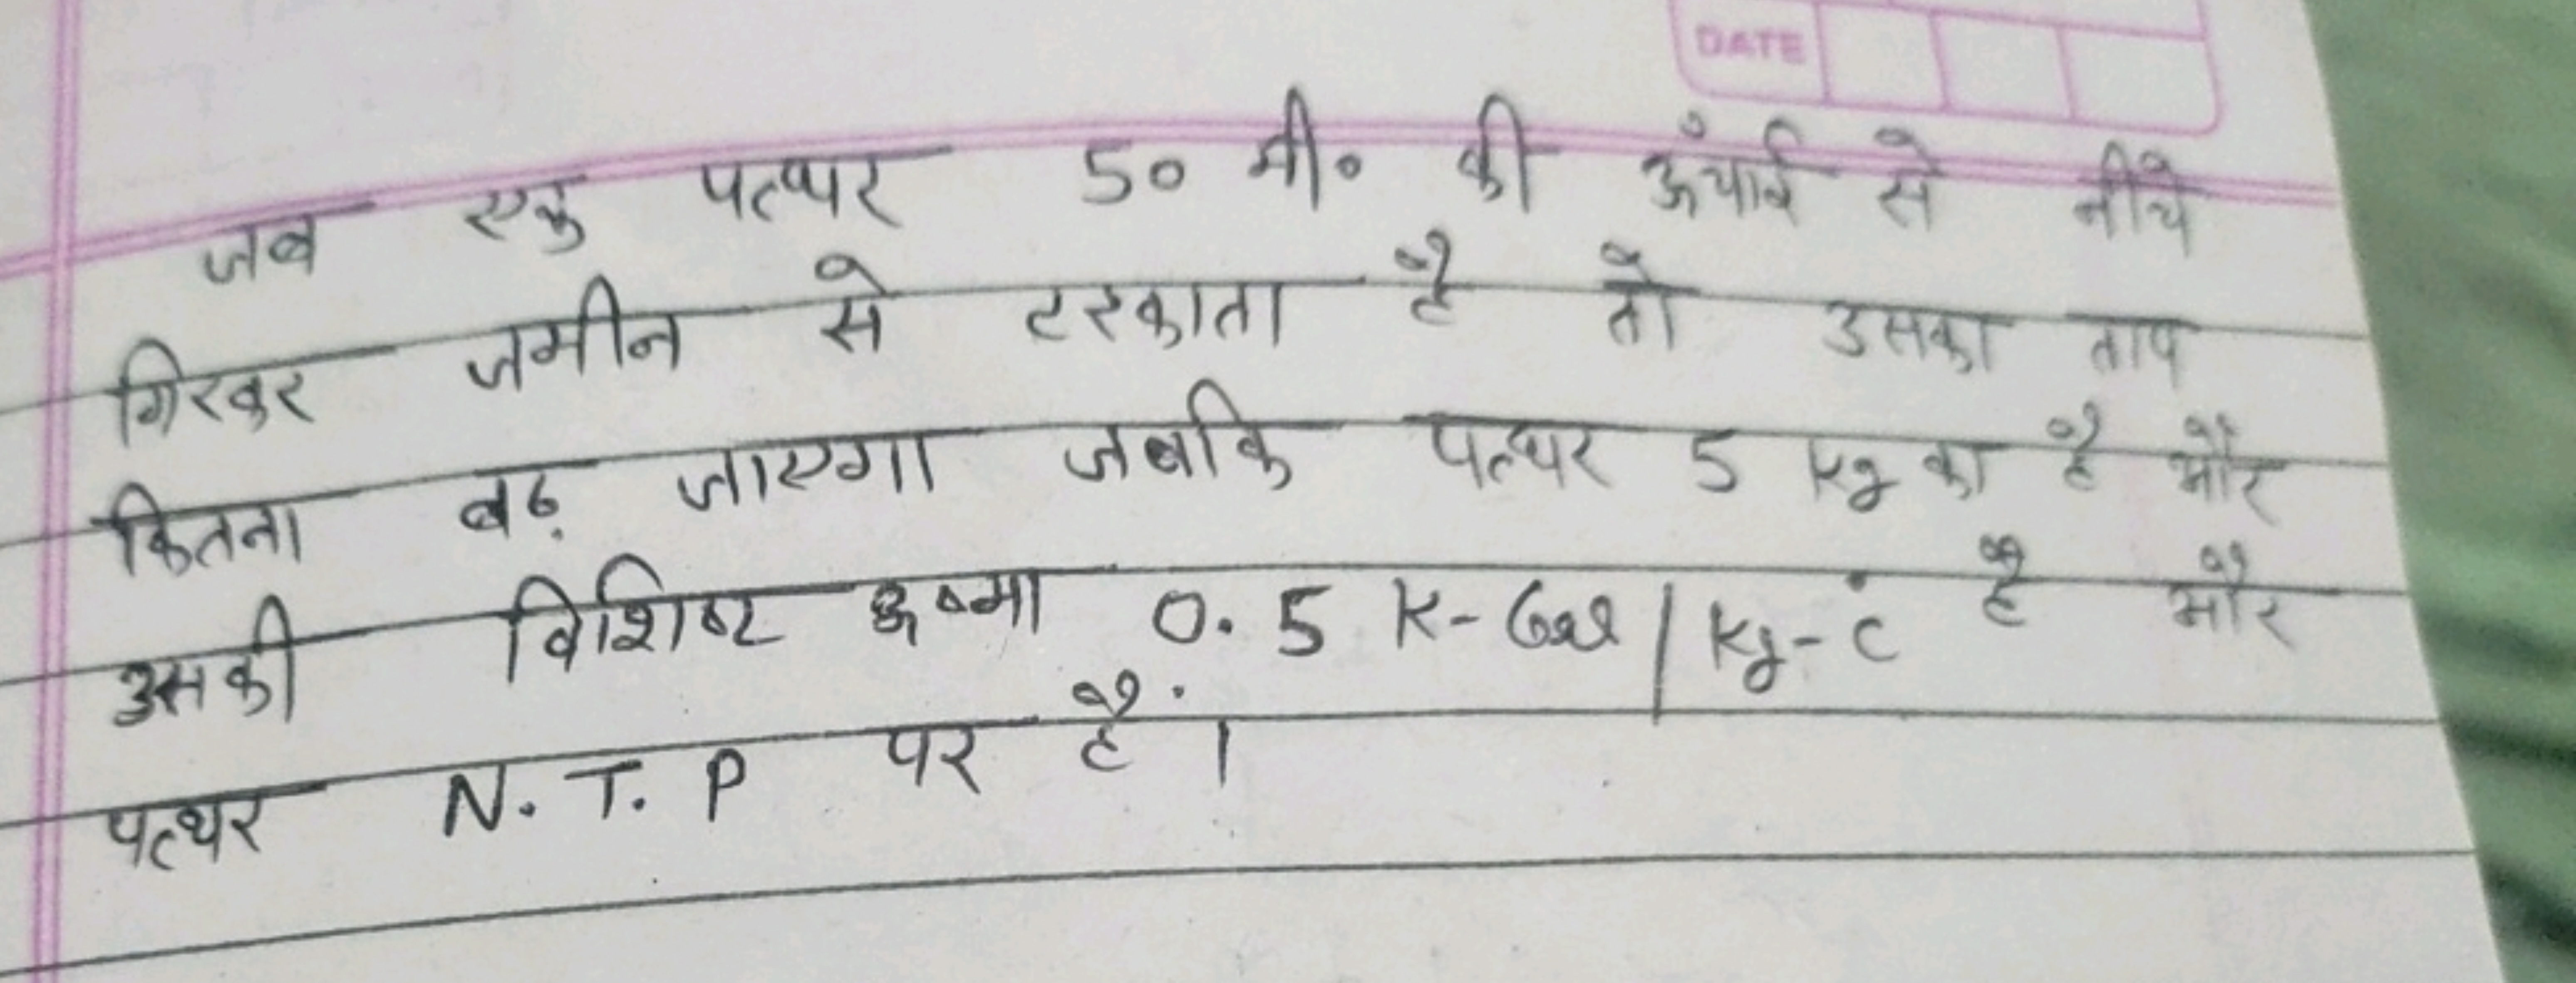 DATE
जब एक पत्थर 50 मी० की ऊंचाई से नीचे
गिरकर जमीन से टरकाता है तो उसका ताप
कितना बढ़ जाएगा जबकि पत्थर 5 kg का है और
उसकी विशिष्ट ऊष्मा 0.5 K-Cal/Kg-c° है और
पत्थर N.T.P पर है।